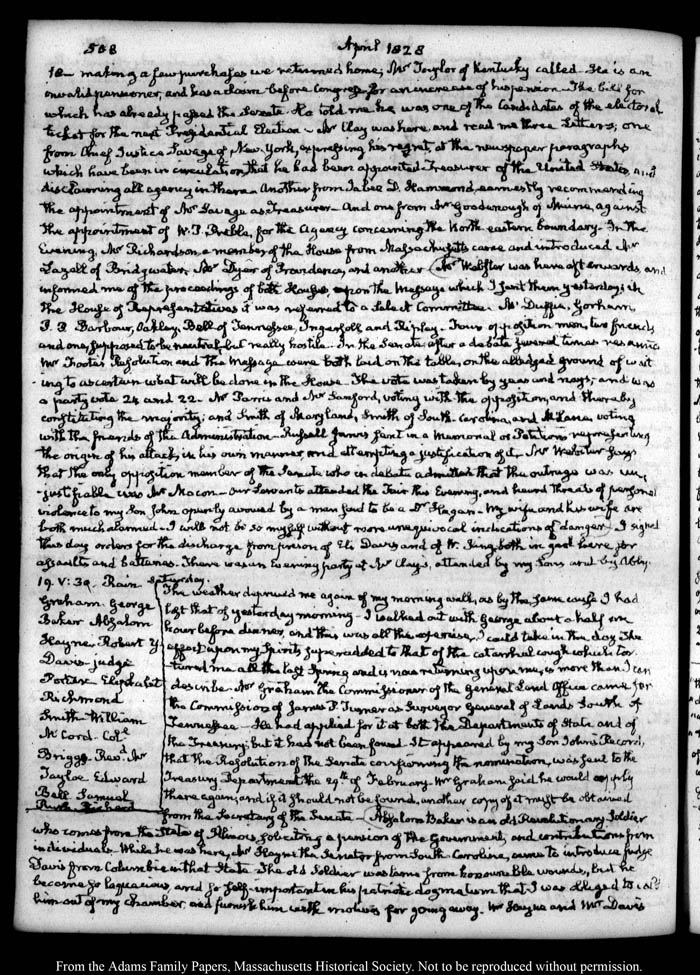 508 April 1828
18— making a few purchases we returned home, Mr Taylor of Kentucky called. He is an
invalid pensioner, and has a claim before Congress for an increase of his pension. The bill for
which has already passed the Senate. He told me he was one of the Candidates of the electoral
ticket for the next Presidential Election — Mr Clay was here, and read me three Letters; one
from Chief Justice Savage of New York, expressing his regret, at the newspaper paragraphs
which have been in circulation, that he had been appointed Treasurer of the United States, and
disclaiming all agency in them. Another from Jabez D. Hammond, earnestly recommending
the appointment of Mr Savage as Treasurer. And one from Mr Goodenough of Maine, against
the appointment of W. P. Preble, for the Agency concerning the North eastern boundary. In the
Evening, Mr Richardson, a member of the House from Massachusetts came and introduced Mr
Lazell of Bridgewater, Mr Dyer of Providence, and another. Mr Webster was here afterwards, and
informed me of the proceedings of both Houses, upon the Message which I sent them yesterday; in
the House of Representatives it was referred to a Select Committee. Mc Duffie, Gorham,
P. P. Barbour, Oakley, Bell of Tennessee, Ingersoll and Ripley. Four opposition men, two friends
and one, supposed to be neutral, but really hostile. In the Senate after a debate
Mr Foot's Resolution and the Message were both laid on the table, on the alledged ground of wait
ing to ascertain what will be done in the House. The vote was taken by yeas and nays; and was
a party vote 24 and 22 — Mr Parris and Mr Sanford, voting with the opposition, and thereby
constituting the majority; and Smith of Maryland, Smith of South-Carolina, and McLane, voting
with the friends of the Administration — Russell Jarvis sent in a Memorial or Petition representing
the origin of his attack, in his own manner, and attempting a justification of it. Mr Webster says
that the only opposition member of the Senate who in debate admitted that the outrage was un
-justifiable was Mr Macon — Our Servants attended the Fair this Evening, and heard threats of personal
violence to my Son John openly avowed by a man said to be a Dr Hagan. My wife and his wife are
both much alarmed. I will not be so myself without more unequivocal indications of danger. I signed
this day orders for the discharge from prison of Eli Davis and of W. King, both in gaol here, for
assaults and batteries. There was an Evening party at Mr Clay's, attended by my Sons and
19. V:30. Rain Saturday.
Graham. George
Baker Absalom
Hayne. Robert Y
Davis. judge
Porter Eliphalet
Richmond
Smith William
McCord. Colo
Briggs. Revd Mr
Tayloe Edward
Bell Samuel
Rush Richard
The weather deprived me again of my morning walk, as by the same cause I had
lost that of yesterday morning — I walked out with George about a half an
hour before dinner, and this was all the exercise, I could take in the day. The
effect upon my Spirits superadded to that of the catarrhal cough which tor
tured me all the last Spring and is now returning upon me, is more than I can
describe. Mr Graham the Commissioner of the General Land Office came for
the Commission of James P. Turner as Surveyor General of Lands South of
Tennessee — He had applied for it at both the Departments of State and of
the Treasury; but it has not been found. It appeared by my Son John's Record,
that the Resolution of the Senate confirming the nomination, was sent to the
Treasury Department the 29th of February. Mr Graham said he would apply
there again, and if it should not be found, another copy of it must be obtained
from the Secretary of the Senate — Absalom Baker is an old Revolutionary Soldier
who comes from the State of Illinois, soliciting a pension of the Government, and contributions from
individuals. While he was here, Mr Hayne the Senator from South Carolina, came to introduce judge
Davis from Columbia in that State. The old Soldier was lame from honourable wounds, but he
became so loquacious, and so self-important in his patriotic dogmatism that I was obliged to
him out of my chamber, and furnish him with motives for going away. Mr Hayne and Mr Davis
From the Adams Family Papers, Massachusetts Historical Society. Not to be reproduced without permission.